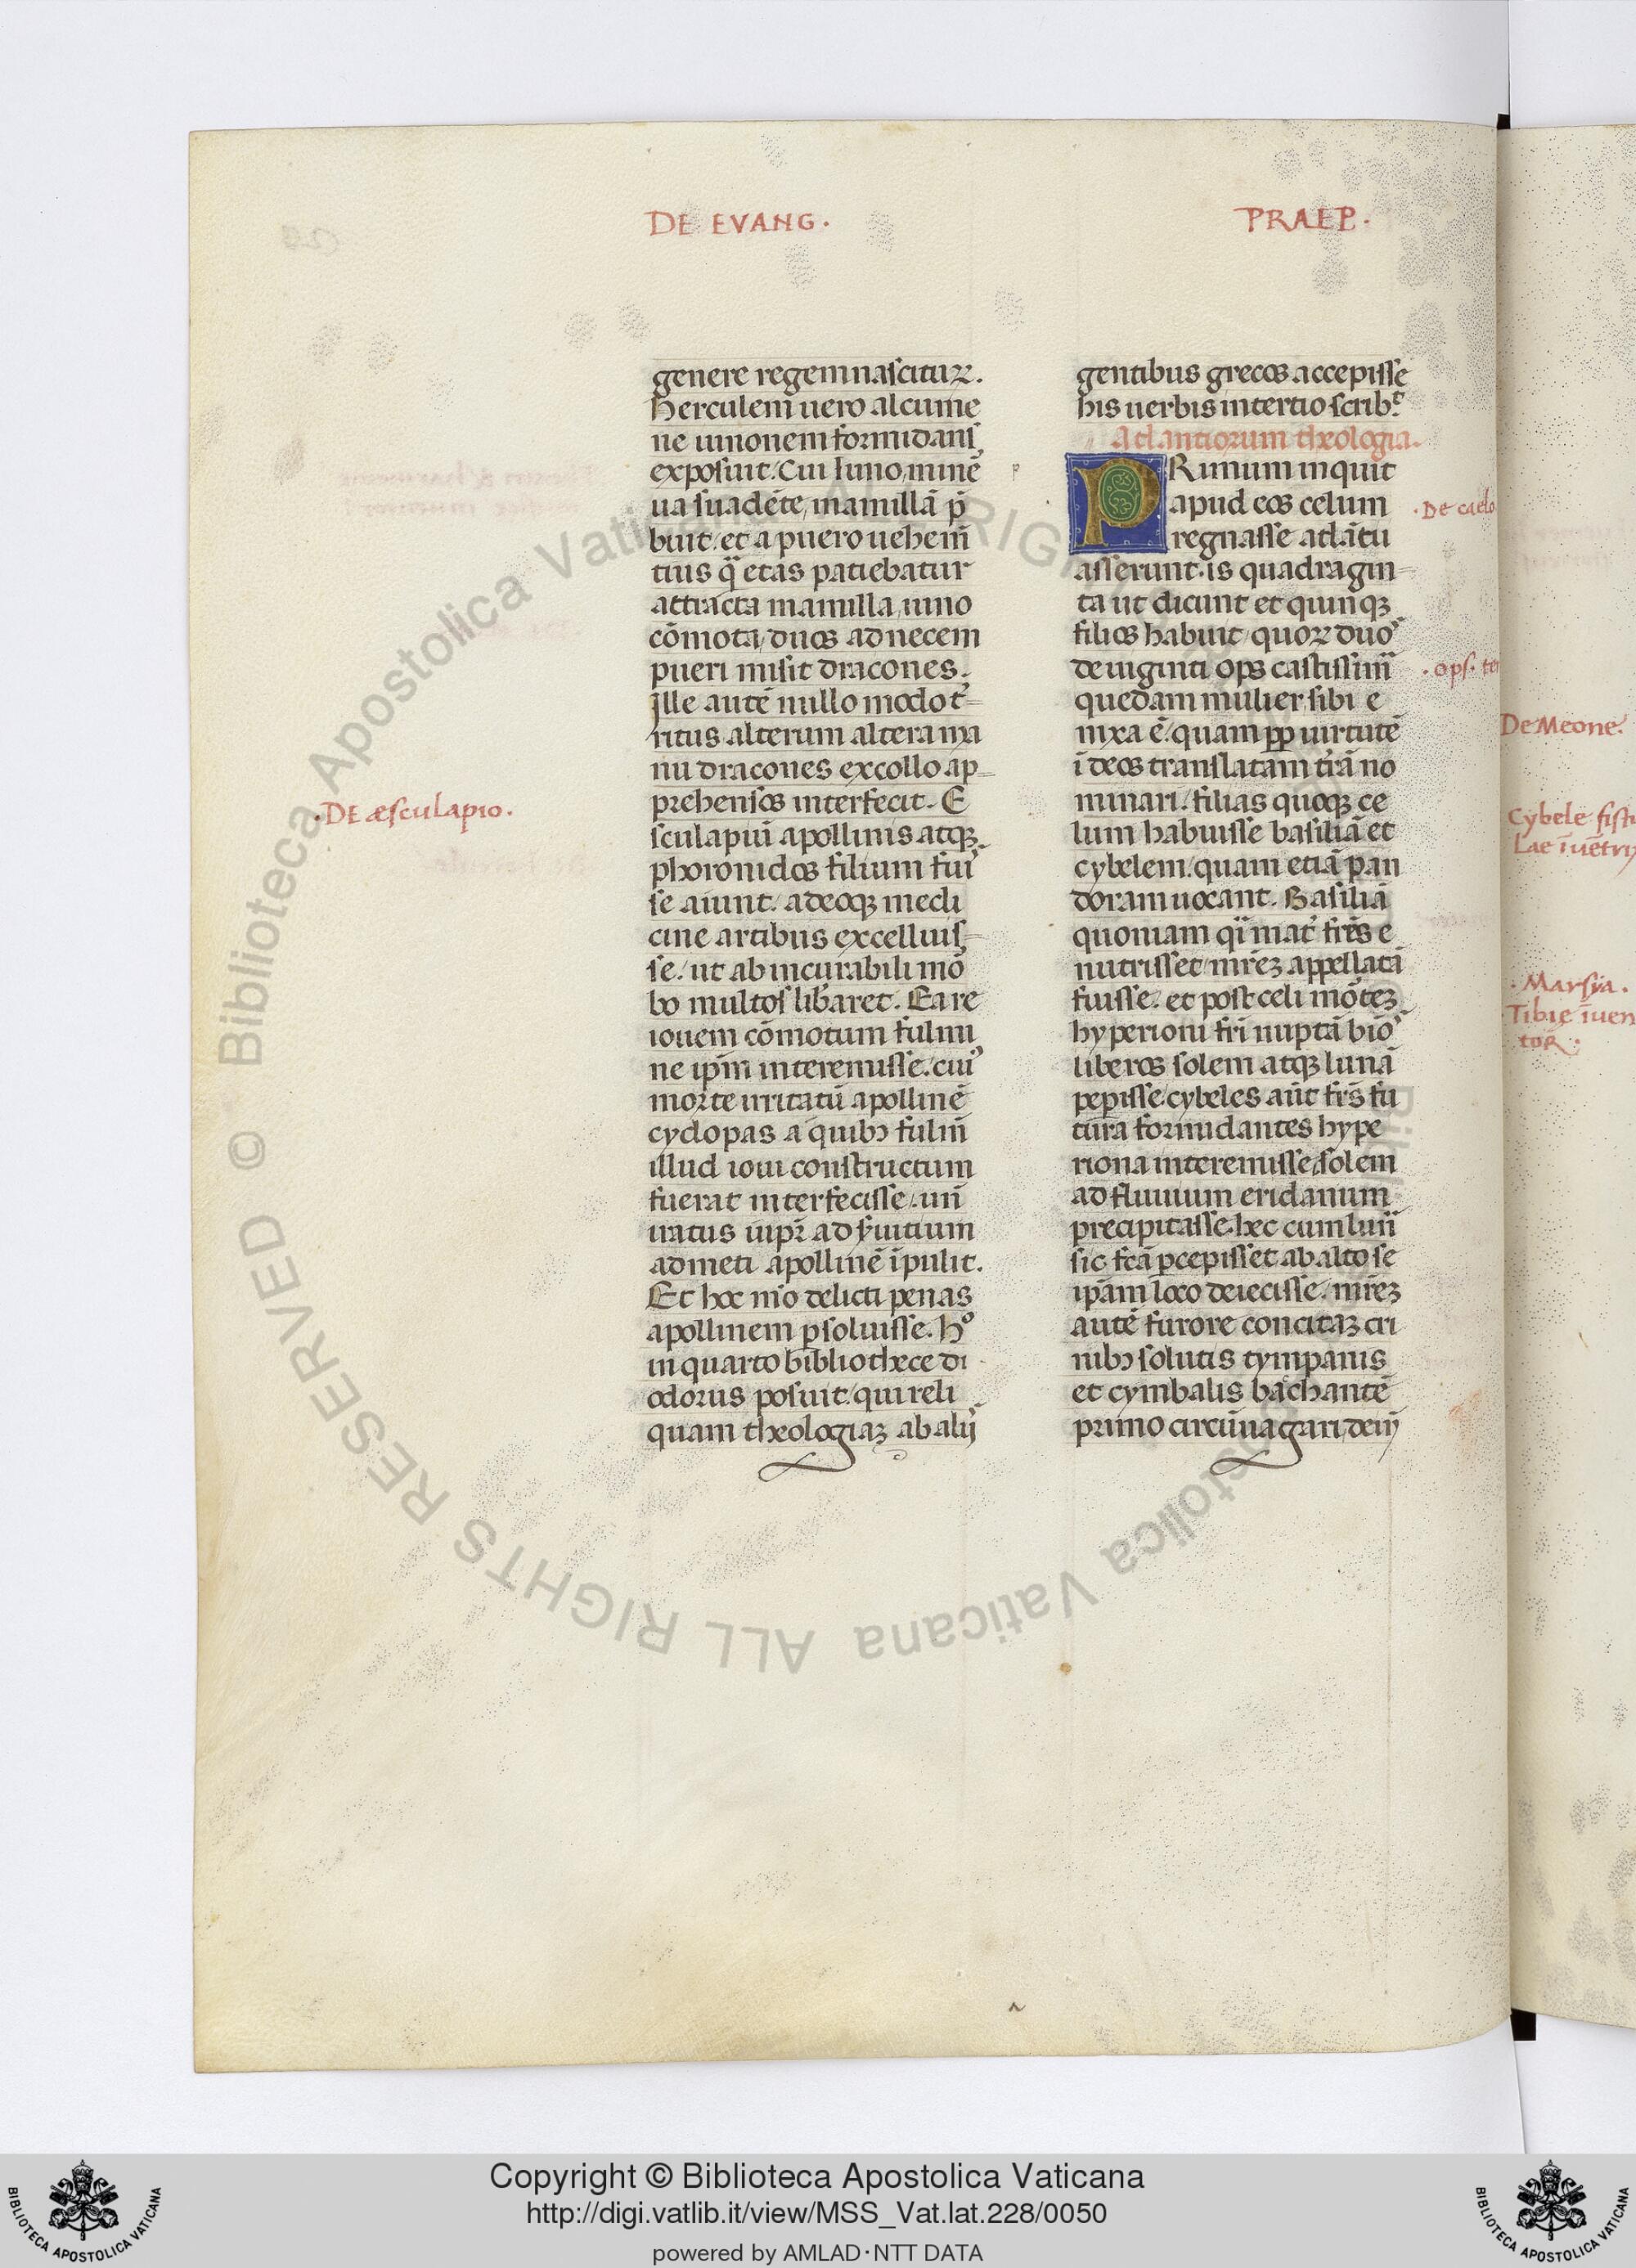 DE EVANG. PRAEP.
genere regem nascituꝝ.
Herculem uero alcume
ne iunonem formidans
exposuit. Cui Iuno, minẽ
ua suadẽte, mamillã p̃
buit. et a puero uehem̃
tius q̃ etas patiebatur
attracta mamilla, iuno
cõmota, duos ad necem
pueri misit dracones.
Ille autẽ nullo modo t̃
ritus alterum altera ma
nu dracones ex collo ap
prehensos interfecit. E
sculapiũ apollinis atqꝫ
phoronidos filium fuis
se aiunt. adeoqꝫ medi
cine artibus excelluis
se. ut ab incurabili mõ
bo multos lib̃aret. Ea re
iouem cõmotum fulmi
ne ip̃m interemisse. cuiꝰ
morte irritatũ apollinẽ
cyclopas a quibꝰ fulm̃
illud ioui constructum
fuerat interfecisse. un̄
iratus iup̄r ad s̃uitium
admeti apollinẽ ĩpulit.
Et hoc mõ delicti penas
apollinem ꝑsoluisse. hͦ
in quarto bibliothece di
odorus posuit. qui reli
quam theologiaꝫ ab alijs
gentibus grecos accepisse
his uerbis in tertio scribͭ
Atlantiorum theologia.
PRimum inquit
apud eos celum
regnasse atlãtii
asserunt. is quadragin
ta ut dicunt et quinqꝫ
filios habuit, quoꝝ duo
deuiginti ops castissimã
quedam mulier sibi e
nixa ẽ. quam ꝓp uirtutẽ
ĩ deos translatam t̃rã no
minari. filias quoqꝫ ce
lum habuisse basiliã et
cybelem. quam etiã pan
doram uocant. Basiliã
quoniam q̃i mat̃ fr̃es e
nutrisset, mr̃eꝫ appellatã
fuisse. et post celi mõteꝫ
hyperioni fr̃i nuptã binos
liberos solem atqꝫ lunã
pepisse, cybeles aũt fr̃s fu
tura formidantes hype
riona interemisse, solem
ad fluuium eridanum
precipitasse. hec cum luna
sic fc̃a ꝑcepisset ab alto se
ip̃am loco deiecisse. mr̃eꝫ
autẽ furore concitaꝫ cri
nibꝰ solutis tympanis
et cymbalis bachantẽ
primo circũuagari, dein
.DE æsculapio.
.De caelo
.ops. te
De Meone.
Cybele fistu
lae ĩuẽtrix
.Marsya.
Tibię ĩuen
toR.
Copyright © Biblioteca Apostolica Vaticana
http://digi.vatlib.it/view/MSS_Vat.lat.228/0050
powered by AMLAD·NTT DATA
BIBLIOTECA APOSTOLICA VATICANA
BIBLIOTECA APOSTOLICA VATICANA
© Biblioteca Apostolica Vaticana ALL RIGHTS RESERVED